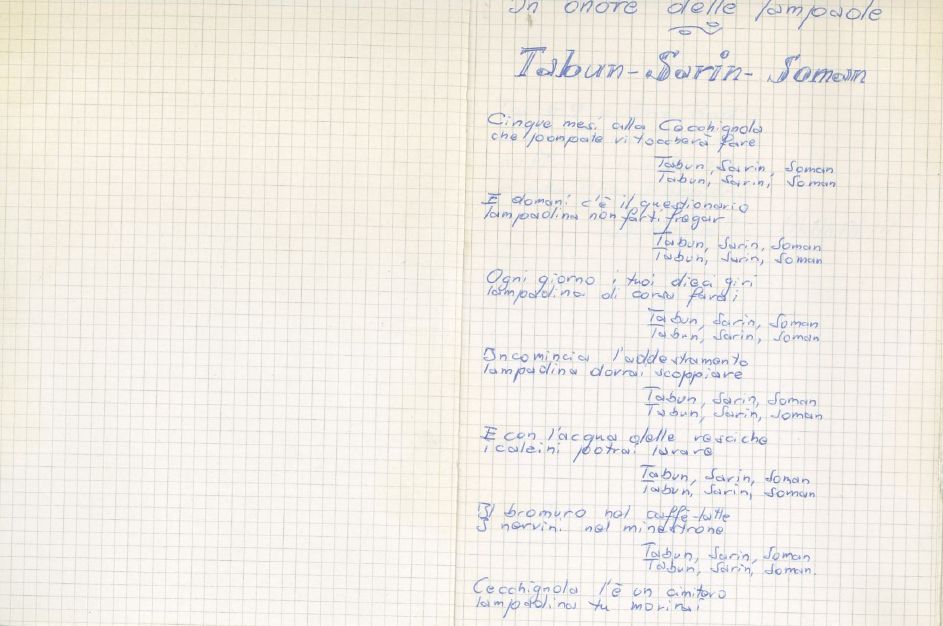 In onore delle lampadine
Tabun-Sarin-Soman
Cinque mesi alla Cecchignola
che pompate vi toccherà fare
Tabun, Sarin, Soman
Tabun, Sarin, Soman
E domani c'è il questionario
lampadina non farti fregar
Tabun, Sarin, Soman
Tabun, Sarin, Soman
Ogni giorno i tuoi dieci giri
lampadina di corsa farai
Tabun, Sarin, Soman
Tabun, Sarin, Soman
Incomincia l'addestramento
lampadina dovrai scoppiare
Tabun, Sarin, Soman
Tabun, Sarin, Soman
E con l'acqua delle vesciche
i calzini potrai lavare
Tabun, Sarin, Soman
Tabun, Sarin, Soman
Il bromuro nel caffè-latte
I nervini nel minestrone
Tabun, Sarin, Soman
Tabun, Sarin, Soman.
Cecchignola l'è un cimitero
lampadina tu morirai